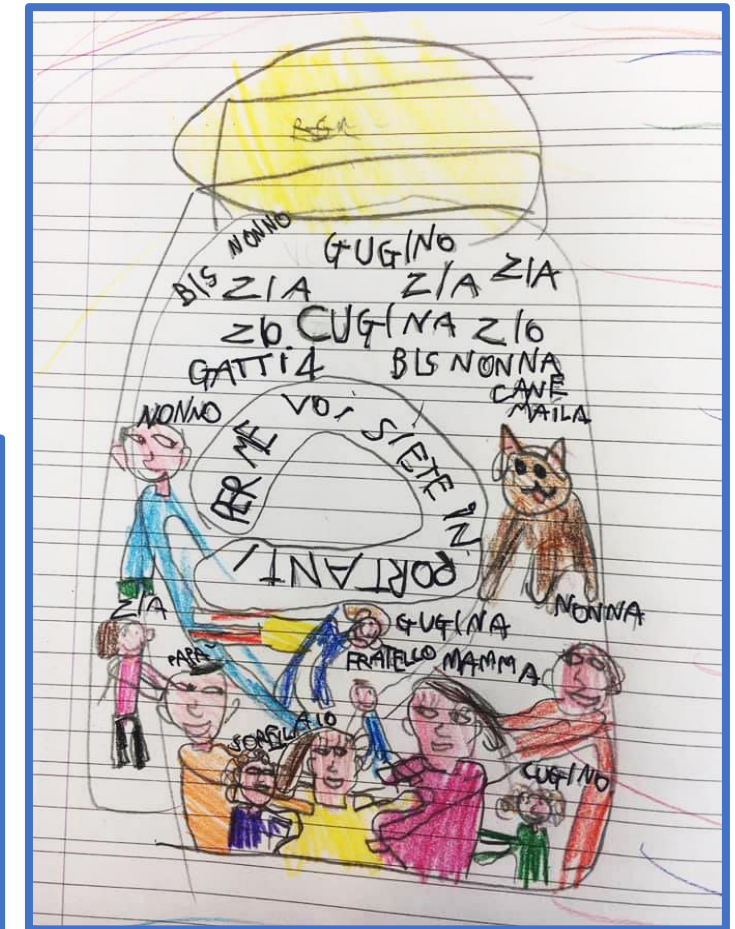 BIS NONNO
GUGINO
ZIA
ZIA
ZIA
ZIO
CUGINA
ZIO
GATTI 4
BIS NONNA
CANE
MAILA
NONNO
PER ME VOI SIETE IN
PORTANTI
NONNA
ZIA
GUGINA
PAPA'
FRATELLO
MAMMA
SORELLA
IO
CUGINO